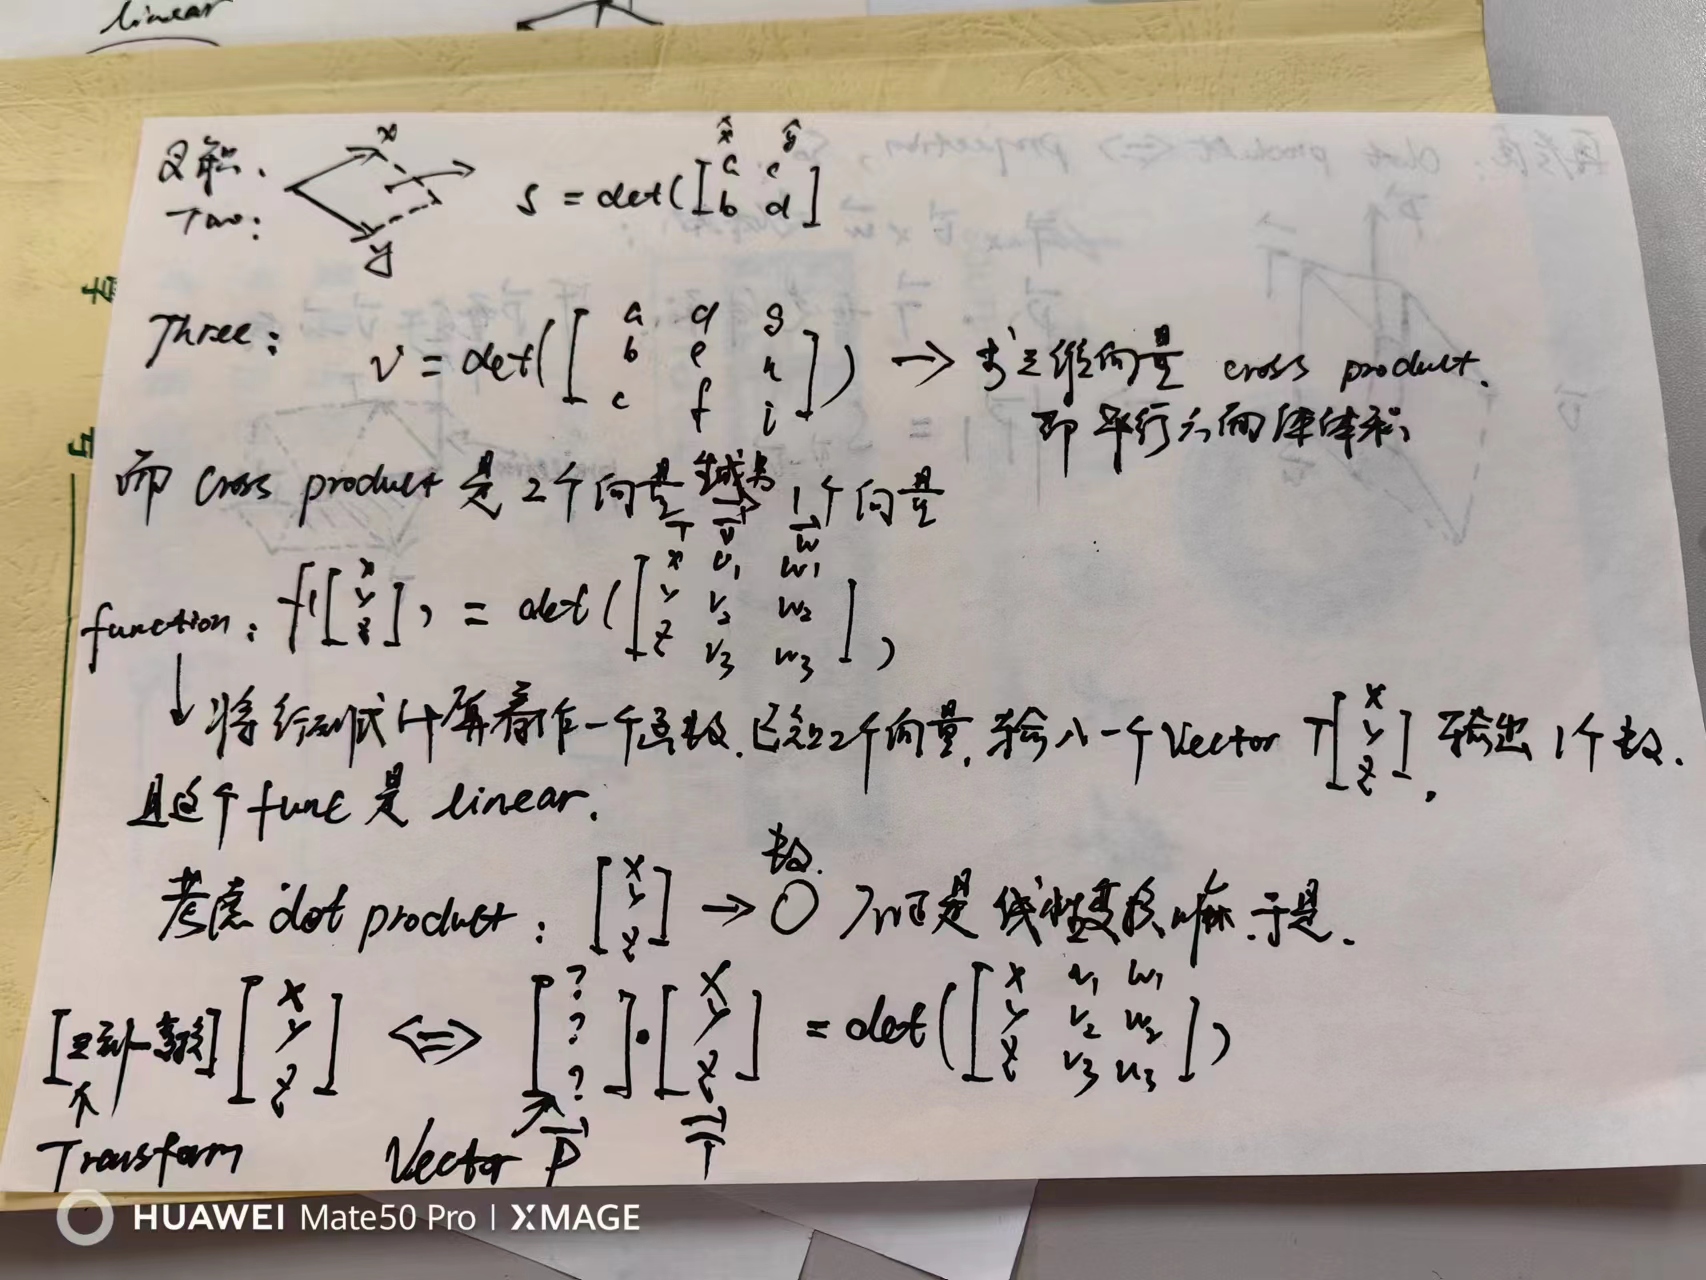 linear
又解.
Two:
x
y
S = det([a c
b d]
x̂ ŷ
Three:
V = det([a d g
b e h
c f i]) → 求三维向量 cross product.
即平行六面体体积
而 cross product 是 2个向量 生成为 → 1个向量
T v w
function: f([x
y
z]) = det([x v1 w1
y v2 w2
z v3 w3])
↓ 将行列式计算看作一个函数. 已知2个向量, 输入一个 Vector T[x
y
z], 输出1个数.
且这个 func 是 linear.
考虑 dot product: [x
y
z] → ○ 数. 不正是线性变换嘛.于是.
[三到一变换] [x
y
z] ⟺ [?
?
?]·[x
y
z] = det([x v1 w1
y v2 w2
z v3 w3])
Transform Vector P T
HUAWEI Mate50 Pro | XMAGE